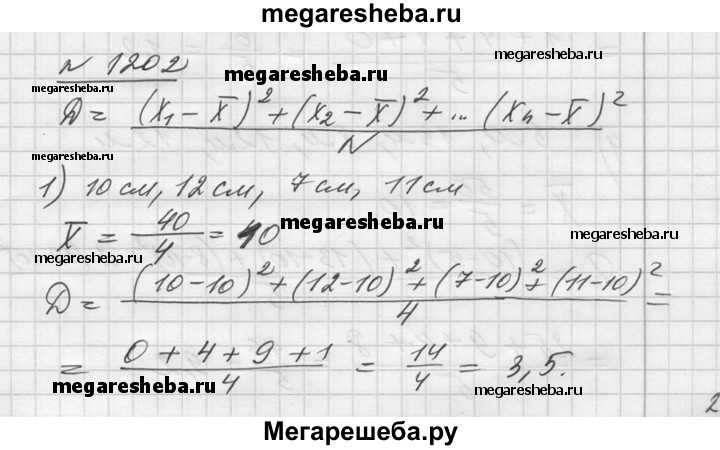 megaresheba.ru
№ 1202
megaresheba.ru
megaresheba.ru
megaresheba.ru
D = (x₁ − x̄)² + (x₂ − x̄)² + ... (xₙ − x̄)² / N
1) 10 см, 12 см, 7 см, 11 см
megaresheba.ru
x̄ = 40/4 = 10
megaresheba.ru
megaresheba.ru
D = (10−10)² + (12−10)² + (7−10)² + (11−10)² / 4 =
= 0 + 4 + 9 + 1 / 4 = 14/4 = 3,5.
megaresheba.ru
megaresheba.ru
megaresheba.ru
2
Мегарешеба.ру